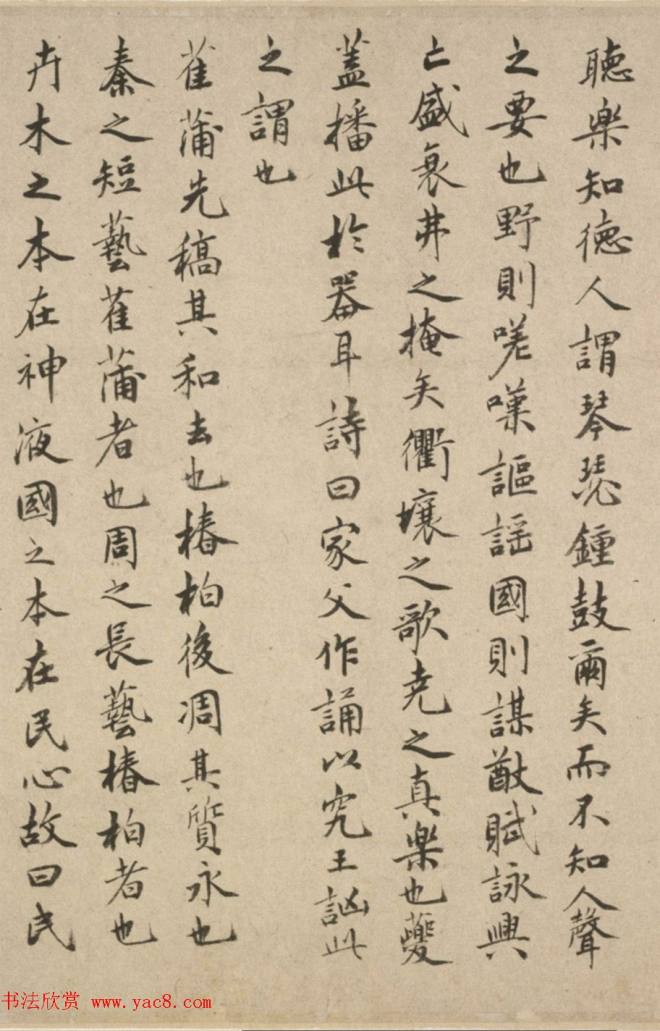 聽樂知德人謂琴瑟鍾鼓爾矣而不知人聲
之要也野則嗟嘆謳謡國則謀猷賦詠興
亡盛衰弗之掩矣衢壤之歌尭之真樂也夔
蓋播此於器耳詩曰家父作誦以究王訩此
之謂也
萑蒲先稿其和去也椿柏後凋其質永也
秦之短藝萑蒲者也周之長藝椿柏者也
卉木之本在神液國之本在民心故曰民
书法欣赏 www.yac8.com